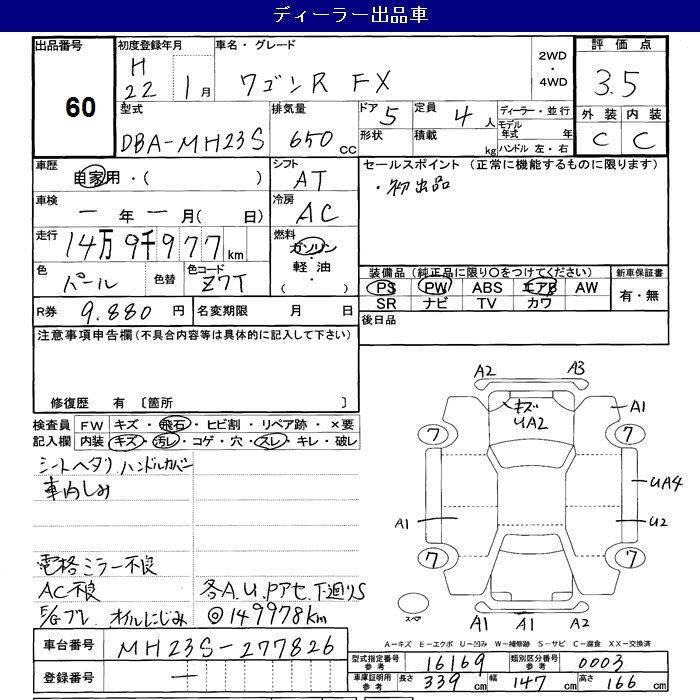 ディーラー出品車
出品番号 初度登録年月 車名・グレード 2WD・4WD 評価点
60 H22 1月 ワゴンR FX 3.5
型式 排気量 ドア 5 定員 4人 ディーラー・並行 外装 内装
DBA-MH23S 650cc 形状 積載 kg モデル年式 年 C C
ハンドル 左・右
車歴 シフト セールスポイント (正常に機能するものに限ります)
自家用・( ) AT ・初出品
車検 冷房
一年一月( 日) AC
走行 燃料
14万9千977km ガソリン・軽油・( )
色 色替 色コード 装備品 (純正品に限り〇をつけてください) 新車保証書
パール Z7T PS PW ABS エアB AW 有・無
SR ナビ TV カワ
R券 9.880円 名変期限 月 日 後日品
注意事項申告欄(不具合内容等は具体的に記入して下さい)
修復歴 有 〔箇所 〕
検査員 FW キズ・飛石・ヒビ割・リペア跡・×要
記入欄 内装 キズ・汚レ・コゲ・穴・スレ・キレ・破レ
シートヘタリ ハンドルカバー
車内しみ
電格ミラー不良
AC不良 各A.U.Pアセ.下廻りS
E/Gブレ オイルにじみ ◎149978km
A2 A3
キズ
UA2
A1
7 7
UA4
A1 U2
7 7
スペア
A1 A1 A2
A-キズ E-エクボ U-凹み W-補修跡 S-サビ C-腐食 XX-交換済
車台番号 MH23S-277826
登録番号 一
型式指定番号 参考 16169 類別区分番号 参考 0003
車庫証明用 参考 長さ 339cm 幅 147cm 高さ 166cm